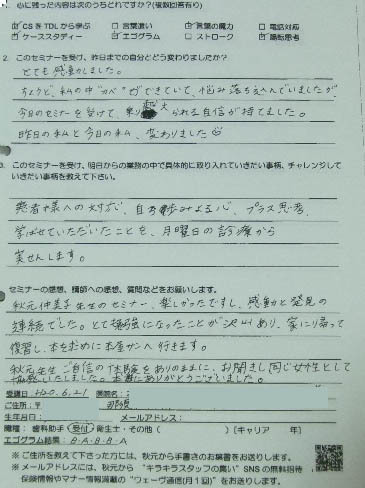 心に残った内容は次のうちどれですか?(複数回答有り)
☑CSをTDLから学ぶ □言葉遣い ☑言葉の魔力 □電話対応
☑ケーススタディー ☑エゴグラム □ストローク ☑陽転思考
2. このセミナーを受け、昨日までの自分とどう変わりましたか?
とても感動しました。
ちょうど、私の中"カベ"ができていて、悩み落ち込んでいましたが、
今日のセミナーを受けて、乗り越えられる自信が持てました。
昨日の私と今日の私、変わりました
3. このセミナーを受け、明日からの業務の中で具体的に取り入れていきたい事柄、チャレンジして
いきたい事柄を教えて下さい。
患者様への対応、自ら歩みよる心、プラス思考、
学ばせていただいたことを、月曜日の診療から
実せんします。
セミナーの感想、講師への感想、質問などをお願いします。
秋元 先生のセミナー、楽しかったですし、感動と発見の
連続でした。とても勉強になったことが沢山あり、家に帰って
復習し、本を求めに本屋さんへ行きます。
秋元先生ご自信の体験をありのままに、お聞きし同じ女性として
感動いたしました。本当にありがとうございました。
受講日 H20.6.21 医院名:
ご住所:〒
生年月日: メールアドレス:
職種: 歯科助手 受付 衛生士・その他( )【キャリア 年】
エゴグラム結果: B・A・B・B・A
※ご住所を教えて下さった方には、秋元から手書きのお葉書をお送りします。
※メールアドレスには、秋元から"キラキラスタッフの集い"SNSの無料招待
保険情報やマナー情報満載の"ウェーヴ通信(月1回)"をお送りします。